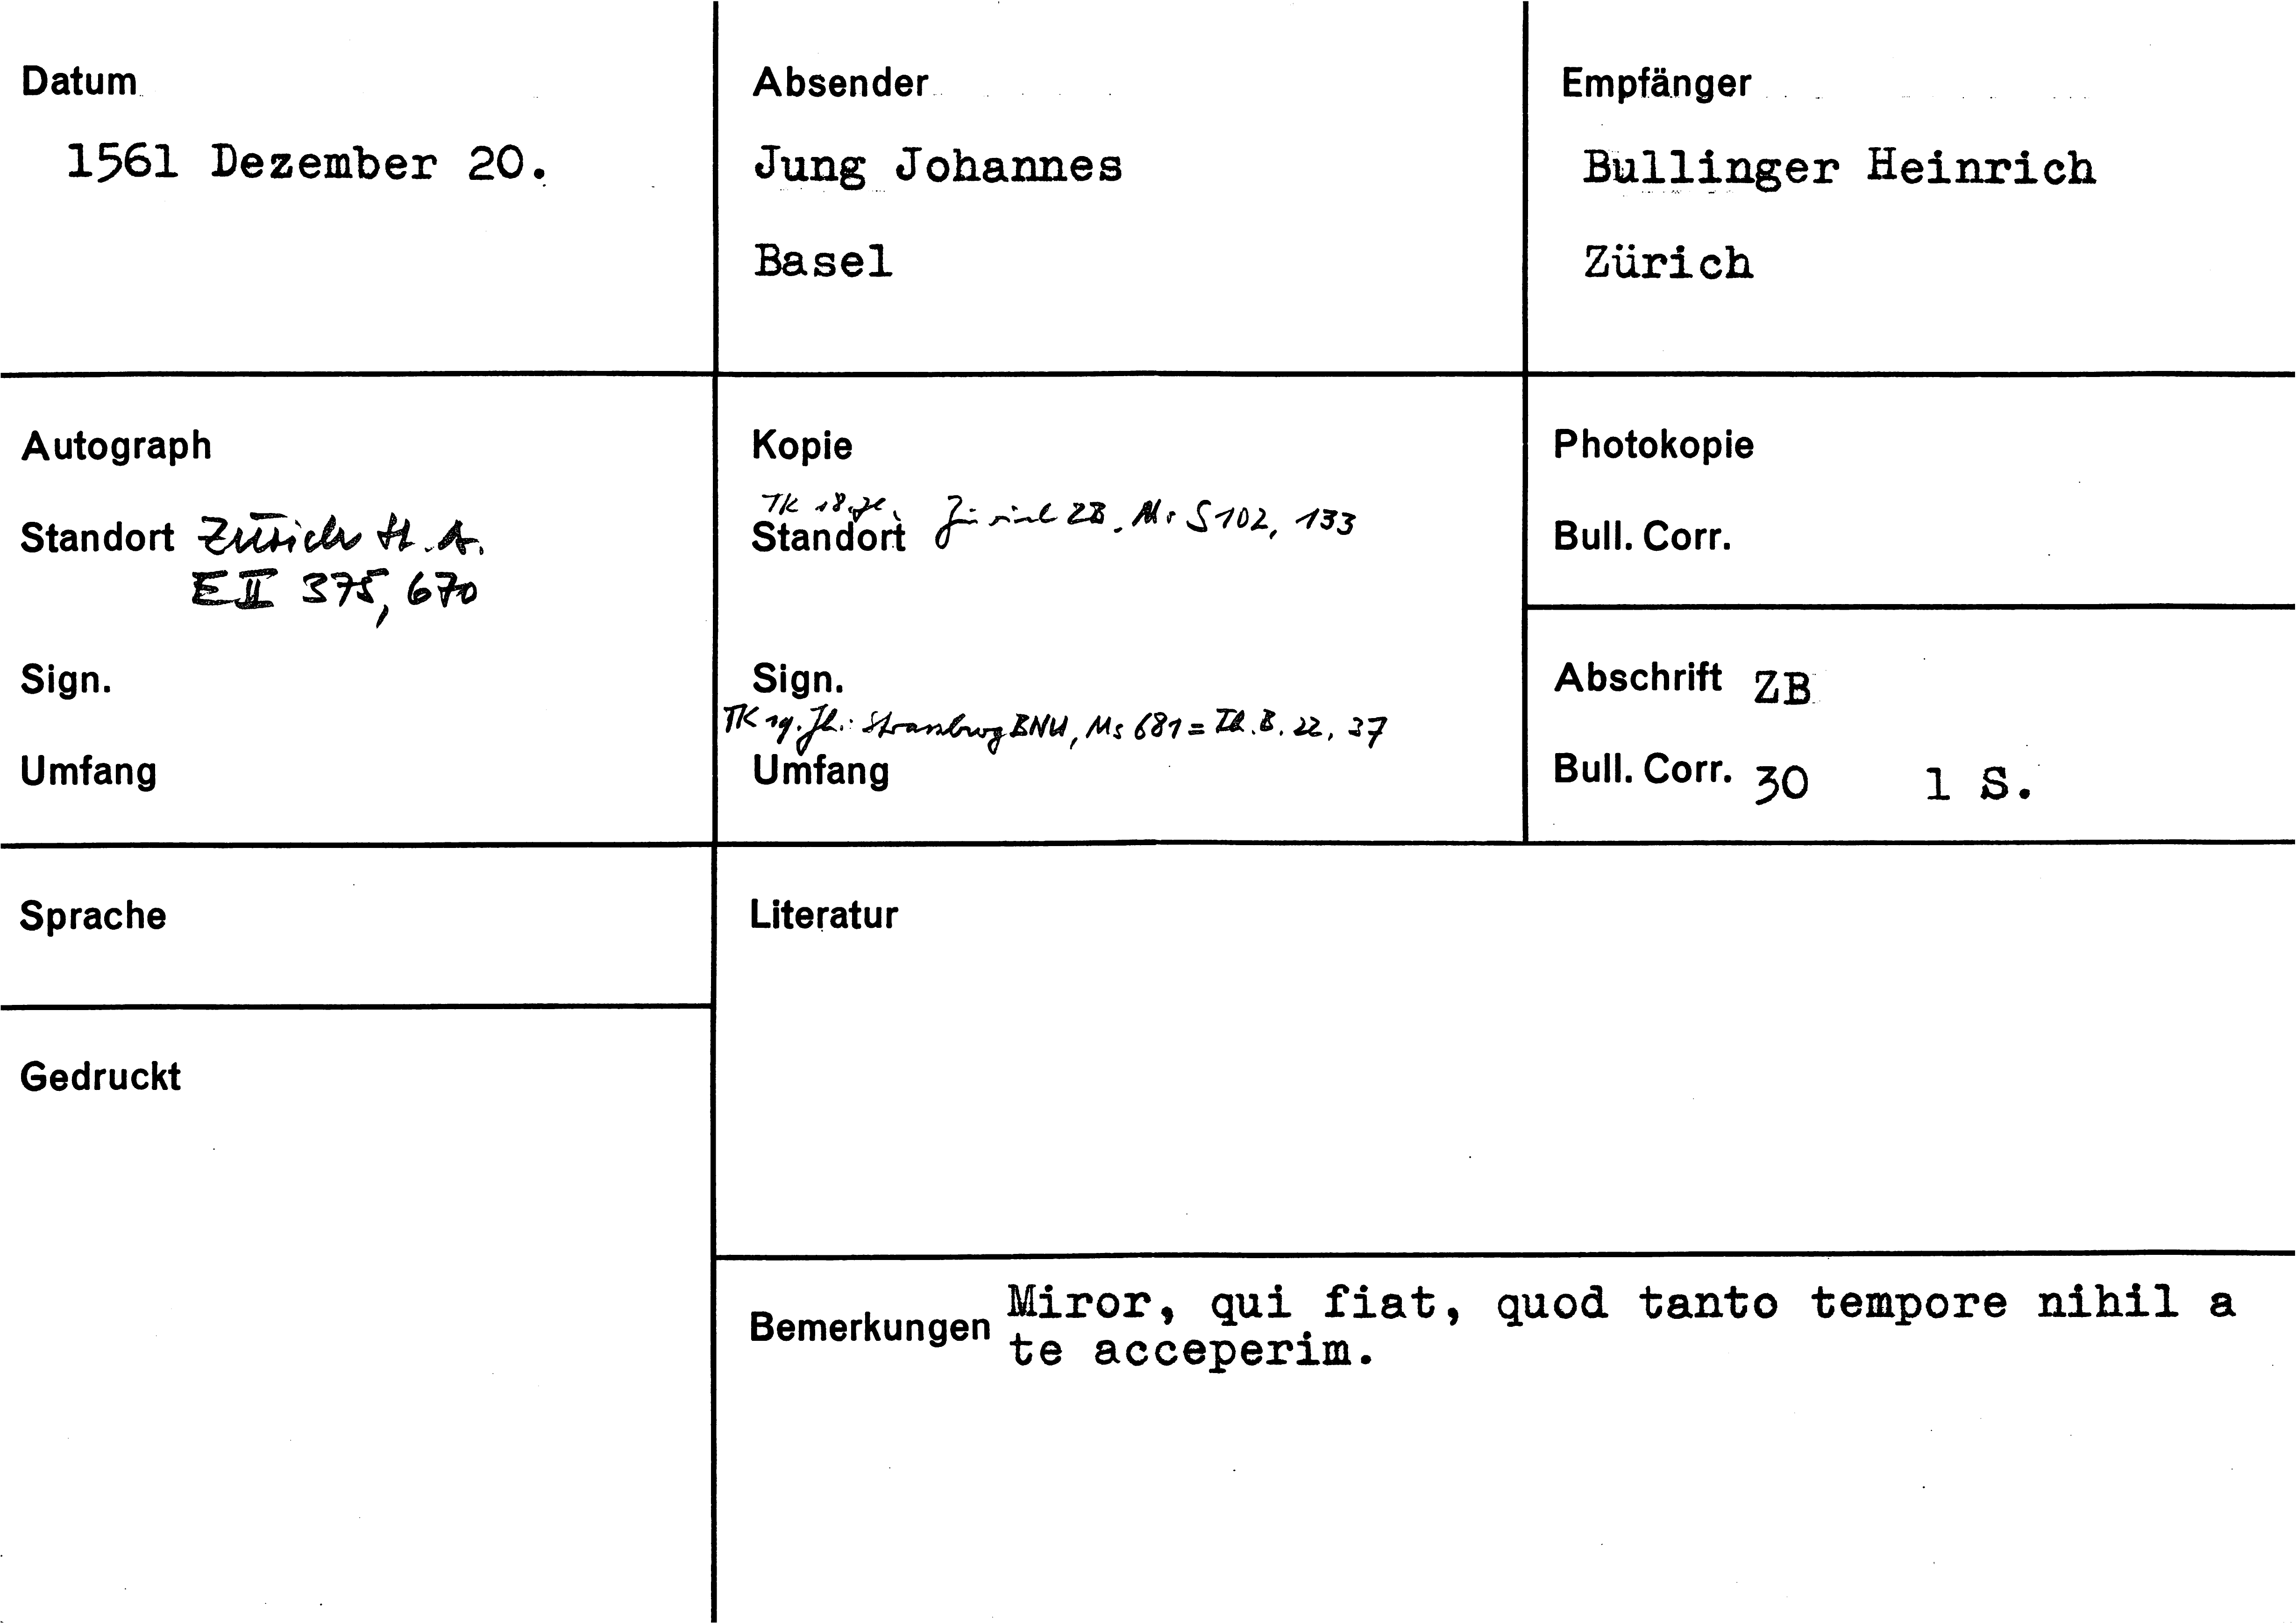 Datum
1561 Dezember 20.
Absender
Jung Johannes
Basel
Empfänger
Bullinger Heinrich
Zürich
Autograph
Standort Zürich St.A.
E II 375, 670
Sign.
Umfang
Kopie
TK 18. Jh.
Standort Zürich ZB, Ms S 102, 133
Sign.
TK 19. Jh.: Strassburg BNU, Ms 681 = Th. B. 22, 37
Umfang
Photokopie
Bull. Corr.
Abschrift ZB
Bull. Corr. 30 1 S.
Sprache
Gedruckt
Literatur
Bemerkungen Miror, qui fiat, quod tanto tempore nihil a
te acceperim.